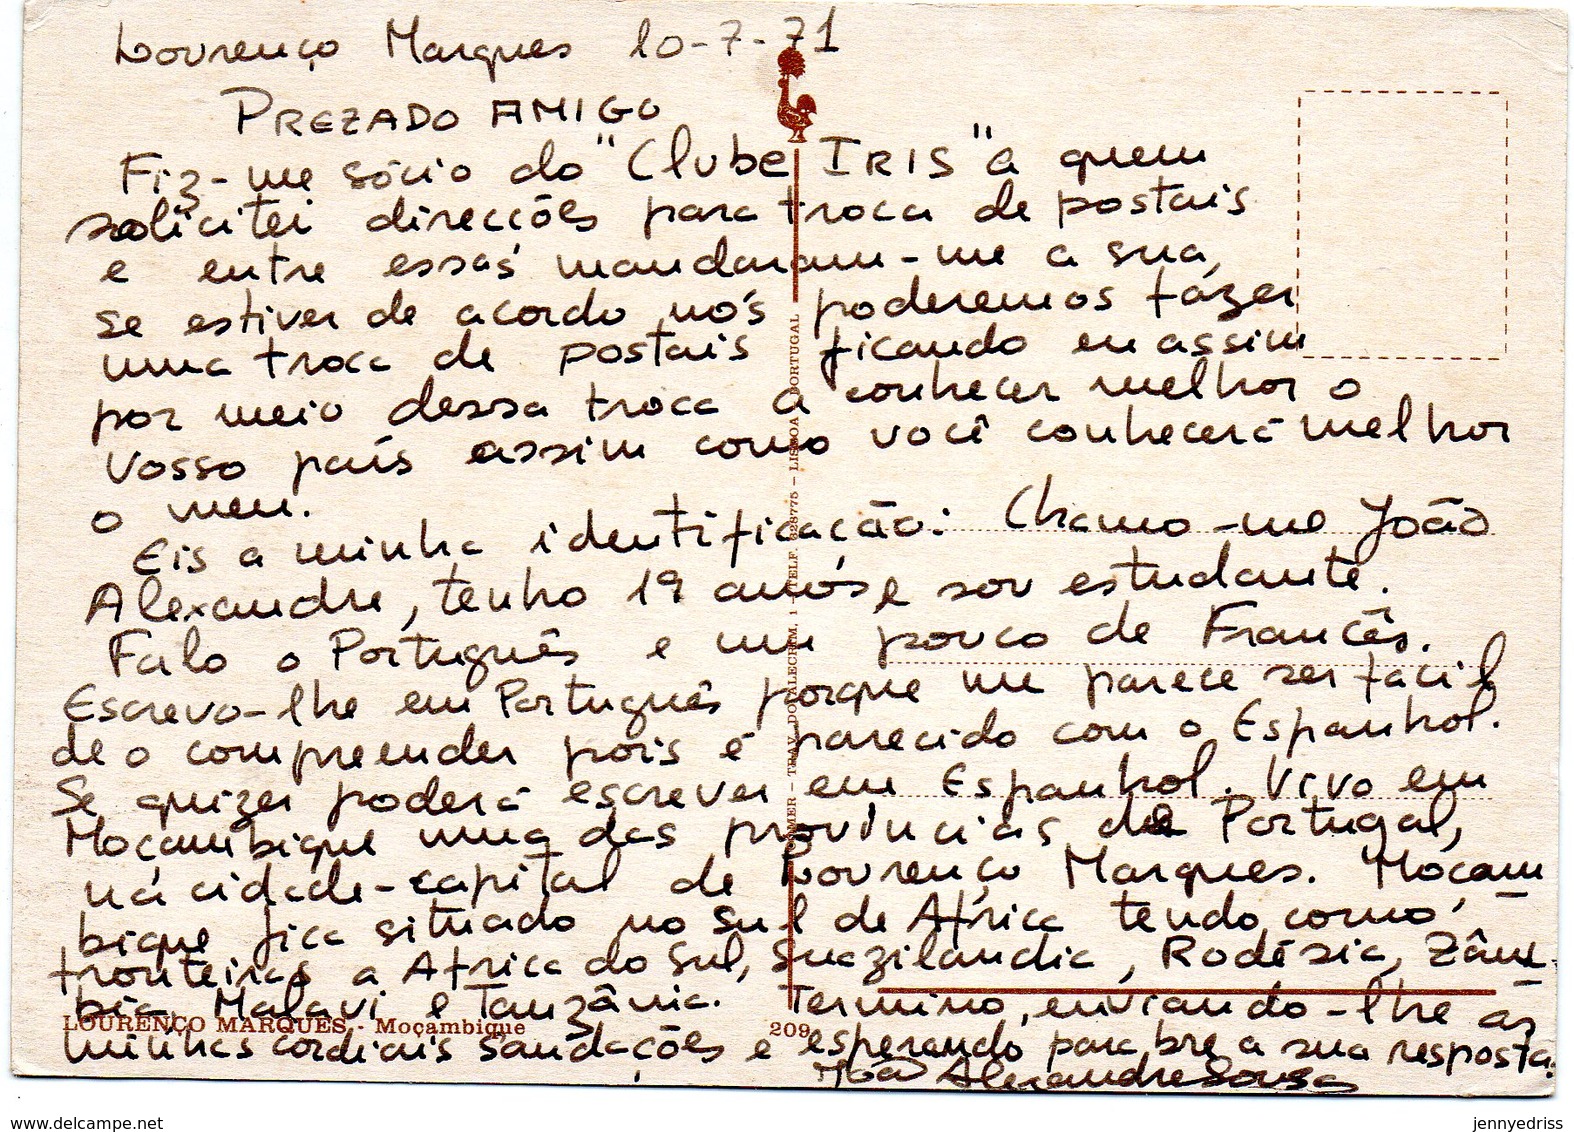 Lourenço Marques 10-7-71
PREZADO AMIGO
Fiz-me sócio do "Clube IRIS" a quem
solicitei direcções para troca de postais
e entre essas mandaram-me a sua,
se estiver de acordo nós poderemos fazer
uma troca de postais ficando eu assim
por meio dessa troca a conhecer melhor o
vosso país assim como você conhecerá melhor
o meu.
Eis a minha identificação: Chamo-me João
Alexandre, tenho 19 anos e sou estudante.
Falo o Português e um pouco de Francês.
Escrevo-lhe em Português porque me parece ser fácil
de o compreender pois é parecido com o Espanhol.
Se quizer poderá escrever em Espanhol. Vivo em
Moçambique uma das províncias de Portugal,
na cidade-capital de Lourenço Marques. Moçam
bique fica situado no Sul de África tendo como
fronteiras a Africa do Sul, Suazilandia, Rodésia, Zâm-
bia, Malavi e Tanzânia. Termino, enviando-lhe as
minhas cordiais saudações e esperando para bre a sua resposta.
João Alexandre Sousa
LOURENÇO MARQUES - Moçambique
209
TRAV. DO ALECRIM, 1 - TELF. 328775 - LISBOA PORTUGAL
www.delcampe.net
jennyedriss